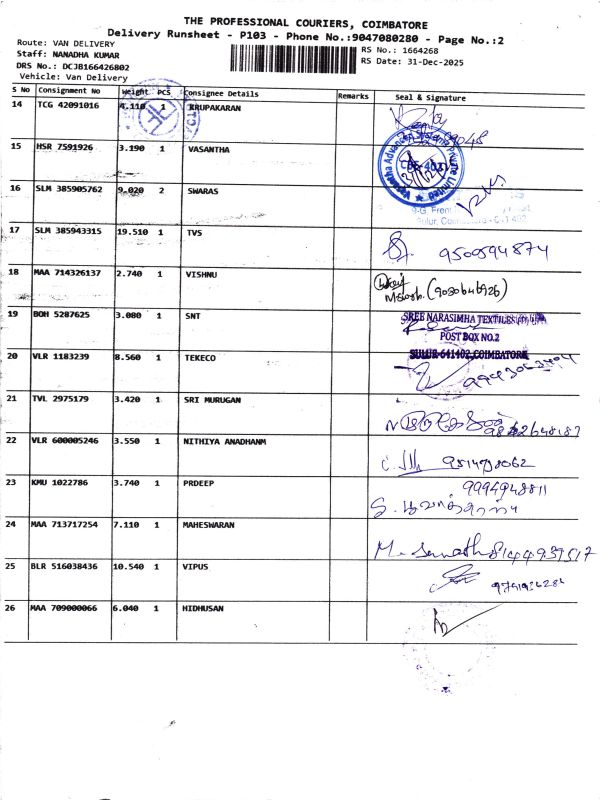 THE PROFESSIONAL COURIERS, COIMBATORE
Delivery Runsheet - P103 - Phone No.:9047080280 - Page No.:2
Route: VAN DELIVERY
Staff: NANADHA KUMAR
DRS No.: DCJB166426802
Vehicle: Van Delivery
RS No.: 1664268
RS Date: 31-Dec-2025
S No Consignment No Weight PCS Consignee Details Remarks Seal & Signature
14 TCG 42091016 4.110 1 KRUPAKARAN
15 HSR 7591926 3.190 1 VASANTHA
16 SLM 385905762 9.020 2 SWARAS
17 SLM 385943315 19.510 1 TVS 9500594874
18 MAA 714326137 2.740 1 VISHNU
19 BOH 5287625 3.080 1 SNT SREE NARASIMHA TEXTILES
POST BOX NO.2
SULUR-641402, COIMBATORE
20 VLR 1183239 8.560 1 TEKECO
21 TVL 2975179 3.420 1 SRI MURUGAN
22 VLR 600005246 3.550 1 NITHIYA ANADHANM
23 KMU 1022786 3.740 1 PRDEEP 9994948811
24 MAA 713717254 7.110 1 MAHESWARAN
25 BLR 516038436 10.540 1 VIPUS
26 MAA 709000066 6.040 1 HIDHUSAN